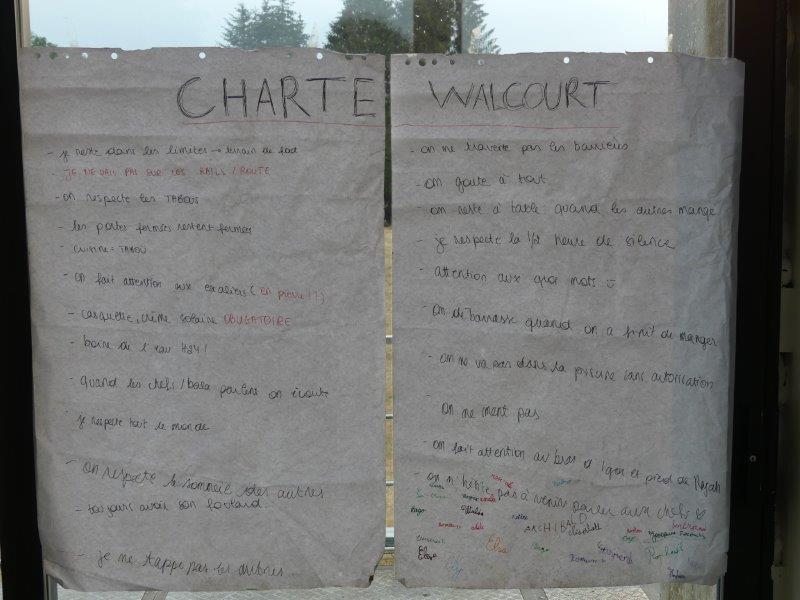 CHARTE
- je reste dans les limites → terrain de foot
- JE NE VAIS PAS SUR LES RAILS / ROUTE
- on respecte les TABOUS
- les portes fermées restent fermées
- cuisine = TABOU
- on fait attention aux escaliers (en pierre !?)
- casquette, crème solaire OBLIGATOIRE
- boire de l'eau H24!
- quand les chefs / baba parlent on écoute
- je respecte tout le monde
- On respecte le sommeil des autres
- toujours avoir son foulard.
- je ne tappe pas les autres.
WALCOURT
- on ne traverse pas les barrières
- on goute à tout
- on reste à table quand les autres mange
- je respecte la 1/2 heure de silence
- attention aux gros mots
- on débarrasse quand on a finit de manger
- on ne va pas dans la piscine sans autorisation
- on ne ment pas
- on fait attention au bras d'Igor et pied de
- on n'hésite pas à venir parler aux chefs ♡
ARCHIBALD
Elisabeth
Elise
Elsa
Raphaël